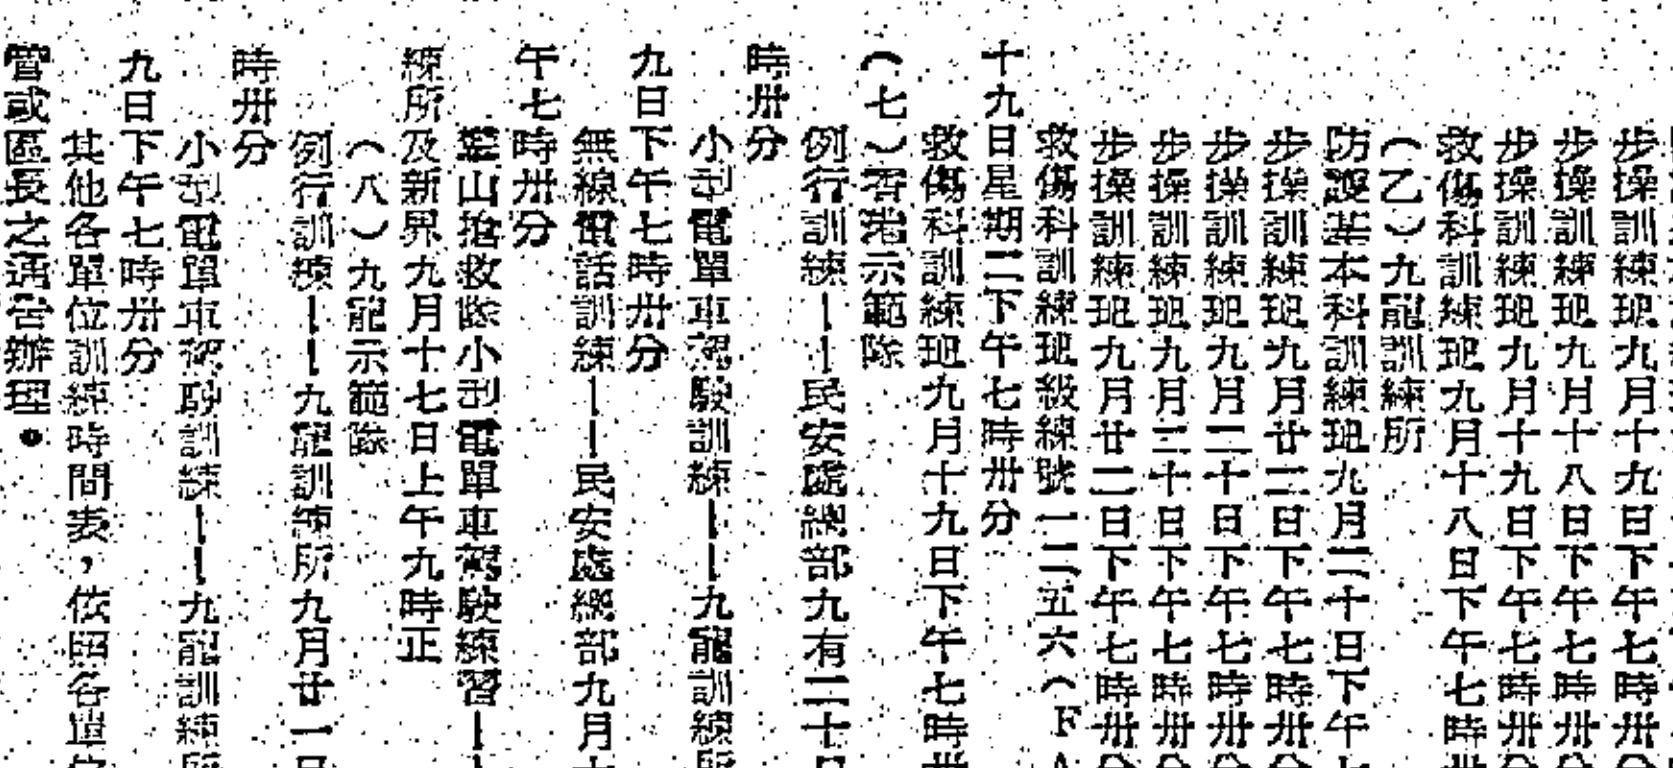 步操訓練班九月十九日下午七時卅分
步操訓練班九月十八日下午七時卅分
步操訓練班九月十九日下午七時卅分
救傷科訓練班九月十八日下午七時卅
（乙）九龍訓練所
防護基本科訓練班九月二十日下午七
步操訓練班九月廿二日下午七時卅分
步操訓練班九月二十日下午七時卅分
步操訓練班九月三十日下午七時卅分
步操訓練班九月廿二日下午七時卅分
救傷科訓練班級編號一二五六（FA
十九日星期二下午七時卅分
救傷科訓練班九月十九日下午七時卅
（七）香港示範隊
例行訓練——民安處總部九有二十日
時卅分
小型電單車駕駛訓練——九龍訓練所
九日下午七時卅分
無線電話訓練——民安處總部九月十
午七時卅分
攀山搶救隊小型電單車駕駛練習—
練所及新界九月十七日上午九時正
（八）九龍示範隊
例行訓練——九龍訓練所九月廿一日
時卅分
小型電單車駕駛訓練——九龍訓練所
九日下午七時卅分
其他各單位訓練時間表，依照各單位
管或區長之通告辦理。